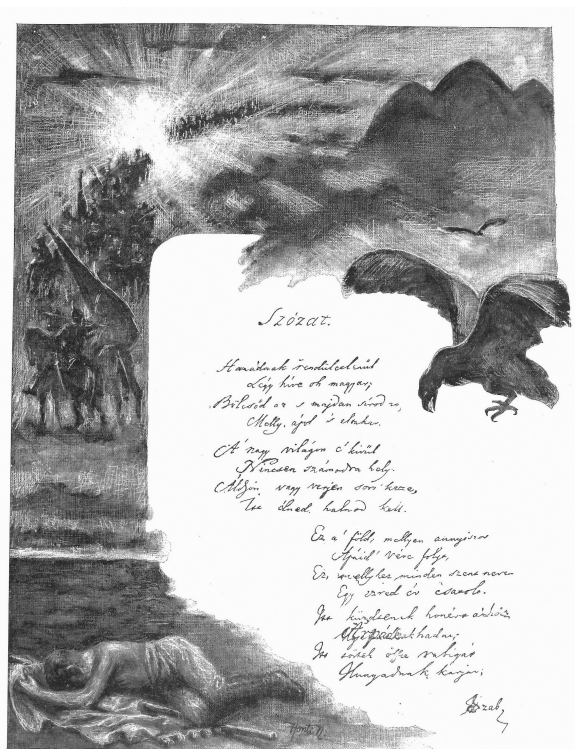 Szózat.
Hazádnak rendületlenűl
Légy híve oh magyar;
Bölcsőd az s majdan sírod is,
Melly ápol s eltakar.
A' nagy világon e' kívűl
Nincsen számodra hely.
Áldjon vagy verjen sors keze,
Itt élned halnod kell.
Ez a' föld, mellyen annyiszor
Apáid' vére folyt,
Ez, mellyhez minden szent nevet
Egy ezred év csatolt.
Itt küzdtenek honért a' hős
Árpádnak hadai;
Itt törtek össze rabigát
Hunyadnak karjai;